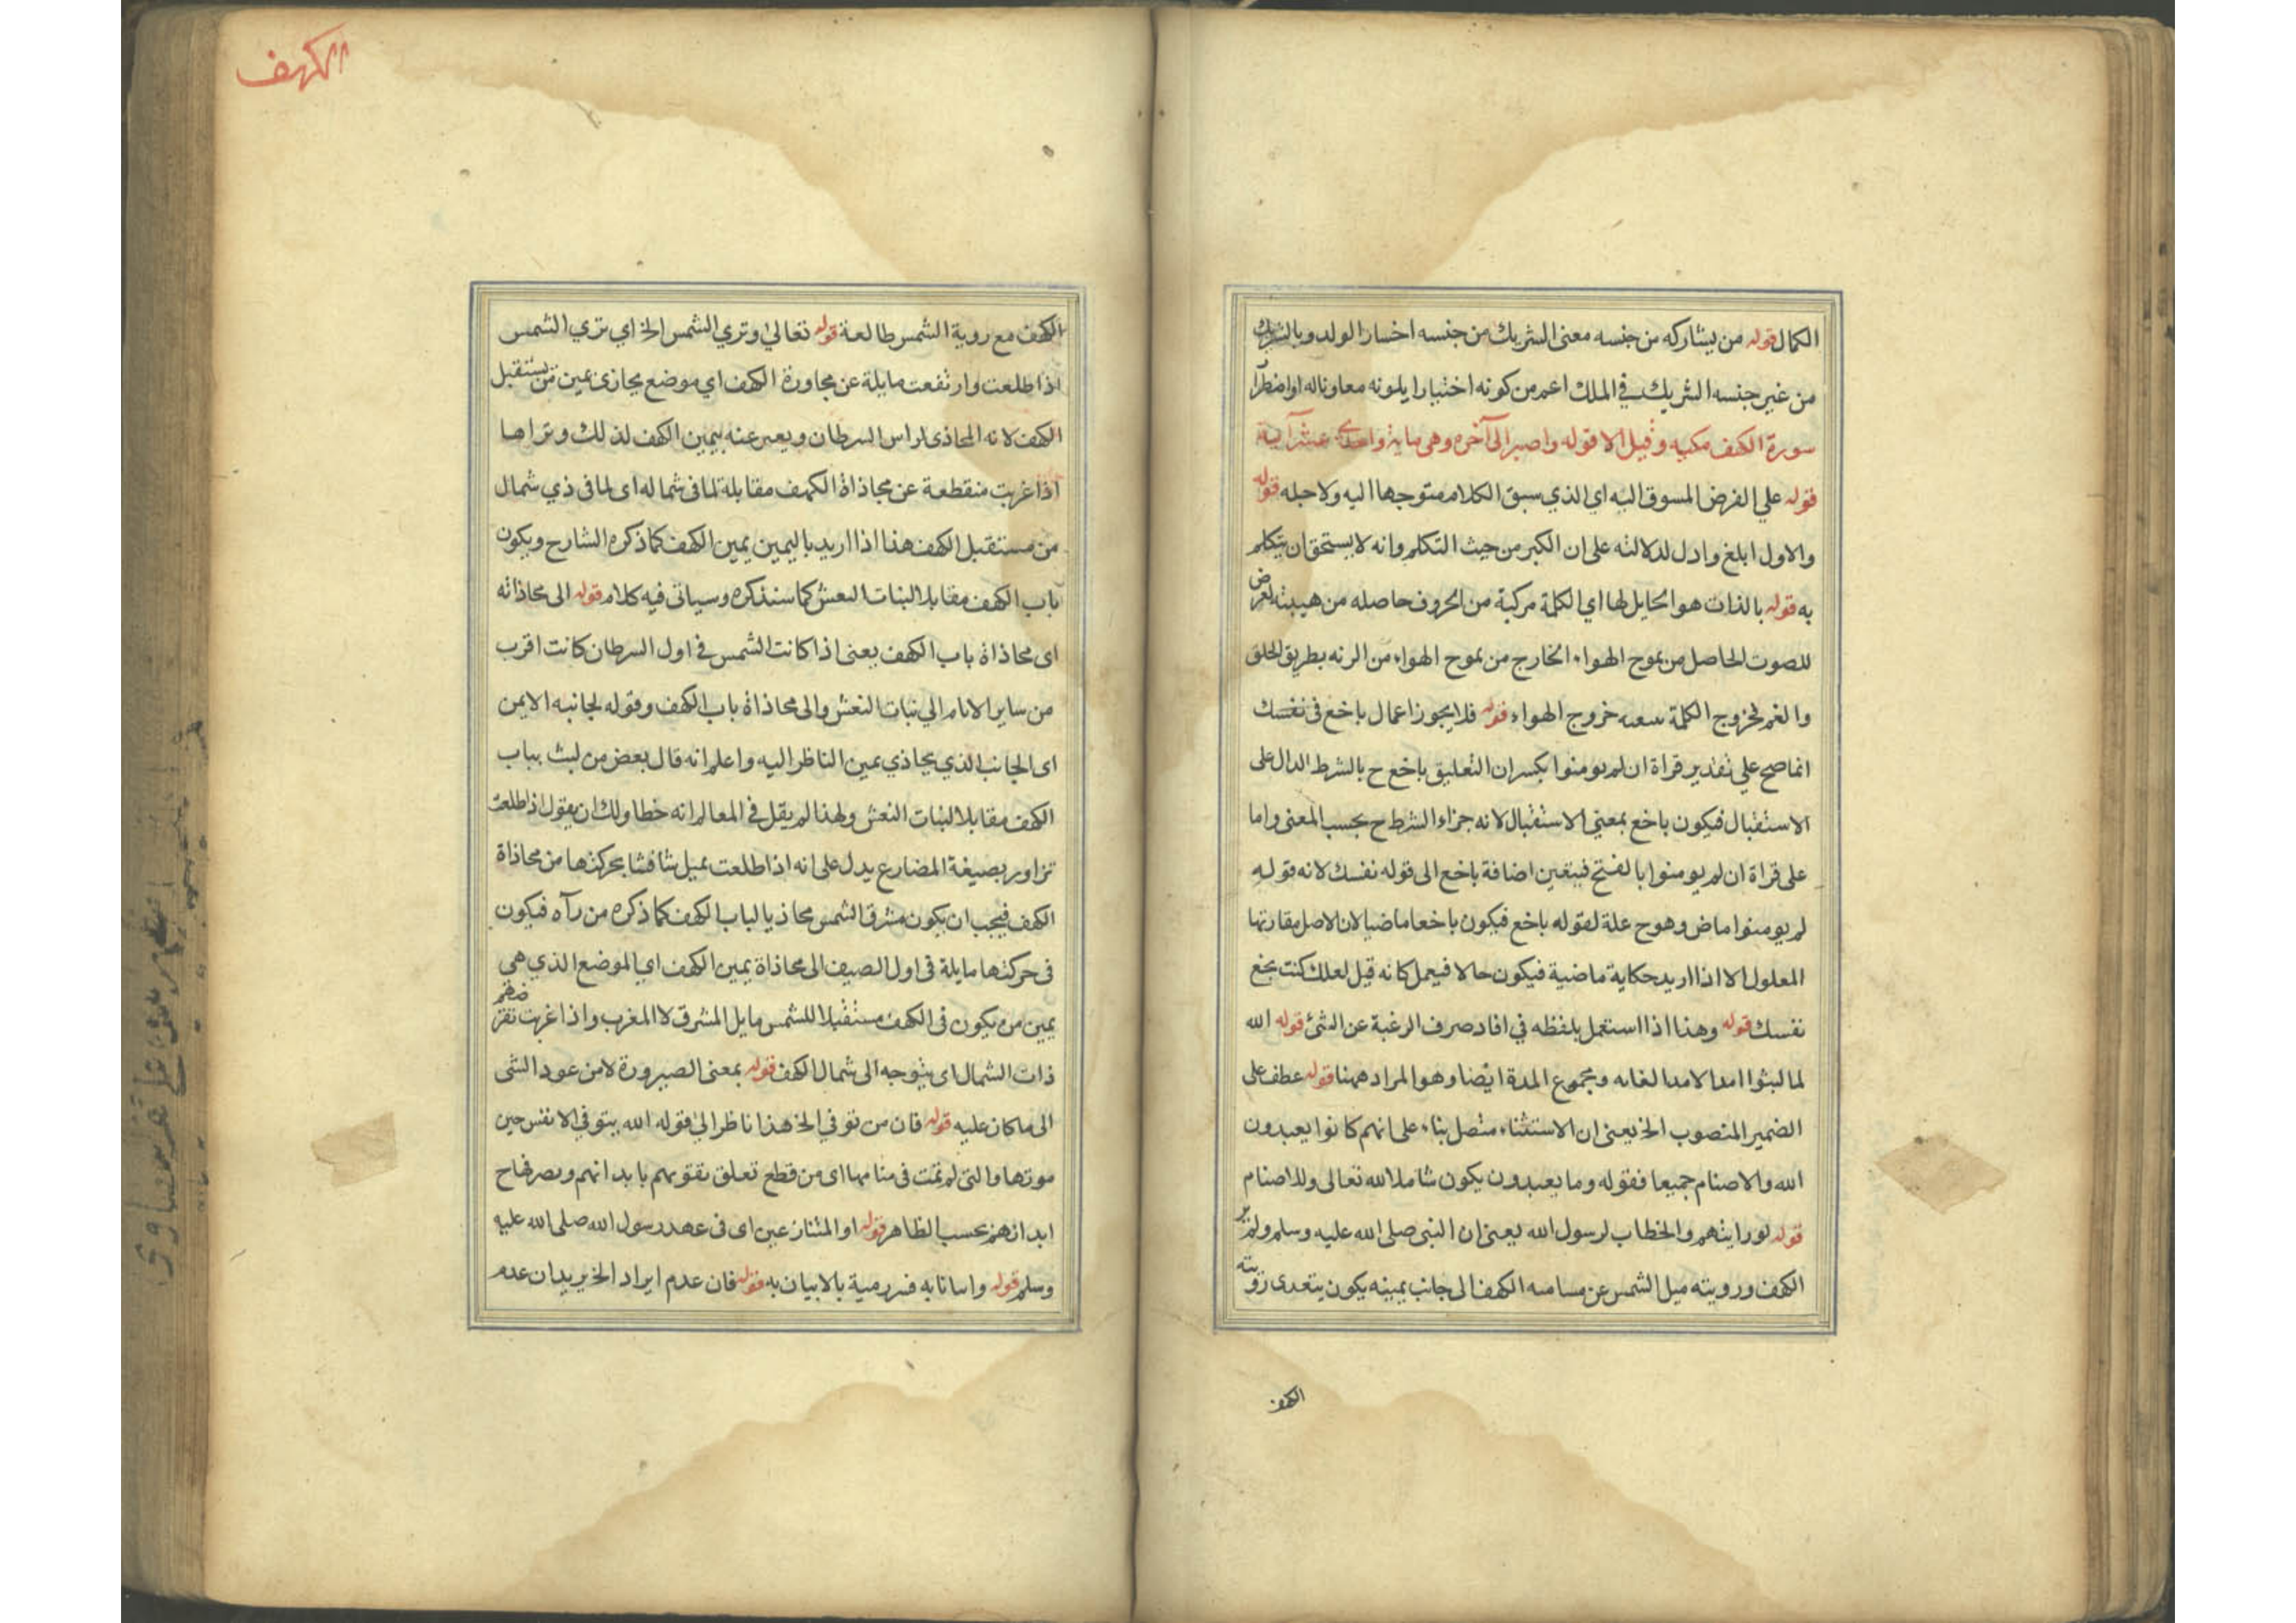 الكمال قوله من يشاركه من جنسه معنى الشريك من جنسه اختيارا الولد وبالشريك
من غير جنسه الشريك في الملك اعم من كونه اختيارا يلونه معاوناله او اضطرآ
سورة الكهف مكيه وقيل الا قوله واصبر الى آخره وهى ماية واحدى عشر آية
قوله علي الفرض المسوق اليه اي الذي سبق الكلام متوجها اليه ولاجله قوله
والاول ابلغ وادل لدلالته على ان الكبر من حيث التكلم وانه لا يستحق ان يتكلم
به قوله بالذات هو الحايل لها اي الكلمة مركبة من الحروف حاصله من هيبته لعرض
للصوت الحاصل من بموج الهواء الخارج من بموج الهواء من الرئه بطريق الحلق
والغم لخروج الكلمة سعه خروج الهواء قوله فلا يجوز اعمال باخع فى نفسك
انما صح علي تقدير قراة ان لم يومنوا بكسر ان التعليق باخع ح بالشرط الدال على
الاستقبال فيكون باخع بمعني الاستقبال لانه جزاء الشرط ح بحسب المعنى واما
على قراة ان لم يومنوا بالفتح فيتعين اضافة باخع الى قوله نفسك لانه قوله
لم يومنوا ماض وهوح علة لقوله باخع فيكون باخعا ماضيا لان الاصل مقارتها
المعلول الا اذا اريد حكاية ماضية فيكون حالا فيعمل كانه قيل لعلك كنت بخع
نفسك قوله وهذا اذا استعمل بلفظه في افاد صرف الرغبة عن الشئ قوله الله
لما لبثوا امدا لامدا لغايه ومجموع المدة ايضا وهو المراد ههنا قوله عطف على
الضمير المنصوب الخ يعنى ان الاستثناء متصل بناء على انهم كانوا يعبدون
الله والاصنام جميعا فقوله وما يعبدون يكون شاملا لله تعالى وللاصنام
قوله لو رايتهم والخطاب لرسول الله يعنى ان النبى صلى الله عليه وسلم ولم ير
الكهف ورويته ميل الشمس عن مسامه الكهف الى جانب يمينه يكون يتعدى رويته
الكهف
الكهف
الكهف مع روية الشمس طالعة قوله تعالى وتري الشمس الخ اي تري الشمس
اذا طلعت وارتفعت مايلة عن مجاورة الكهف اي موضع يحازى يمين من يستقبل
الكهف لانه المحاذى لراس السرطان ويعبر عنه بيمين الكهف لذلك وتراها
اذا غربت منقطعة عن محاذاة الكهف مقابلة لما فى شماله اى لما فى ذي شمال
من مستقبل الكهف هذا اذا اريد باليمين يمين الكهف كما ذكره الشارح ويكون
باب الكهف مقابلا لبنات النعش كما سنذكره وسياتى فيه كلام قوله الى محاذاته
اى محاذاة باب الكهف يعنى اذا كانت الشمس فى اول السرطان كانت اقرب
من ساير الايام الي بنات النعش والى محاذاة باب الكهف وقوله لجانبه الايمن
اى الجانب الذي يحاذي يمين الناظر اليه واعلم انه قال بعض من لبث بباب
الكهف مقابلا لبنات النعش ولهذا لم يقل فى المعالم انه خطا ولك ان يقول اذا طلعت
تزاور بصيغة المضارع يدل على انه اذا طلعت يميل شافشا بحركتها من محاذاة
الكهف فيجب ان يكون مشرق الشمس محاذيا لباب الكهف كما ذكره من رآه فيكون
فى حركتها مايلة فى اول الصيف الى محاذاة يمين الكهف اي الموضع الذي هى
يمين من يكون فى الكهف مستقبلا للشمس مايل المشرق لا المغرب واذا غربت تقرضهم
ذات الشمال اى يتوجه الى شمال الكهف قوله بمعنى الصيرورة لا من عود الشى
الى ما كان عليه قوله فان من توفي الخ هذا ناظر الي قوله الله يتوفي الانفس حين
موتها والتى لم تمت فى منامها اى من قطع تعلق نفوسهم بابدانهم وتصرفها ح
ابدانهم بحسب الظاهر قوله او المتنازعين اى فى عهد رسول الله صلى الله عليه
وسلم قوله واساتابه فنررمية بالابيان به قوله فان عدم ايراد الخ يريد ان عدم